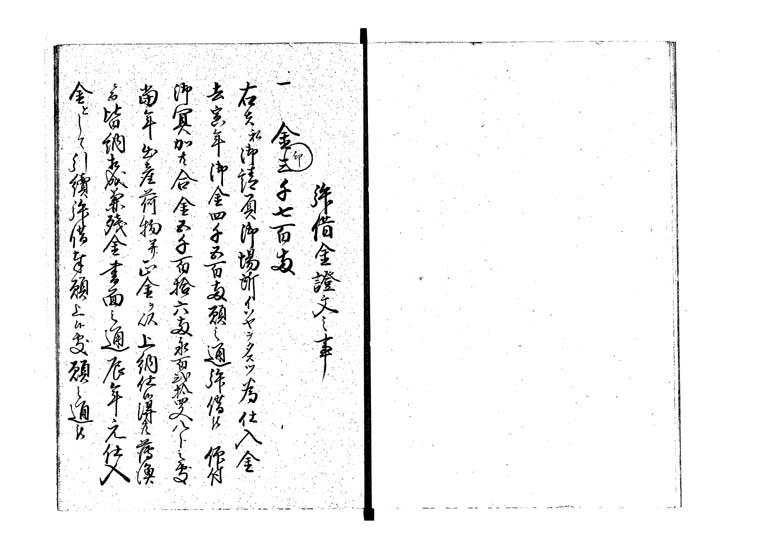 拝借金證文之事
一 金三千七百両
印
右是私御請負御場所イシヤラタヌツ為仕入金
去寅年御金四千五百両願之通拝借被 仰付
御冥加共合金五千百拾六両永百弐拾四文八分之処
当年出産荷物并正金ヲ以上納仕候得共薄漁
ニ而皆納相成兼残金書面之通辰年元仕入
金として引續拝借奉願上候処願之通被